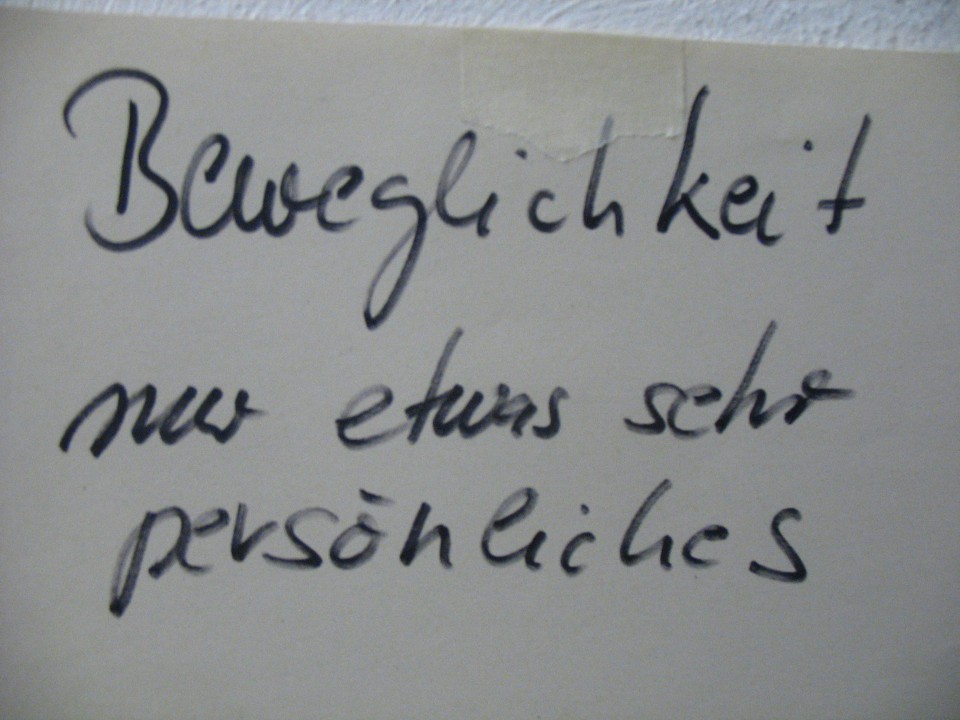 Beweglichkeit
nur etwas sehr
persönliches